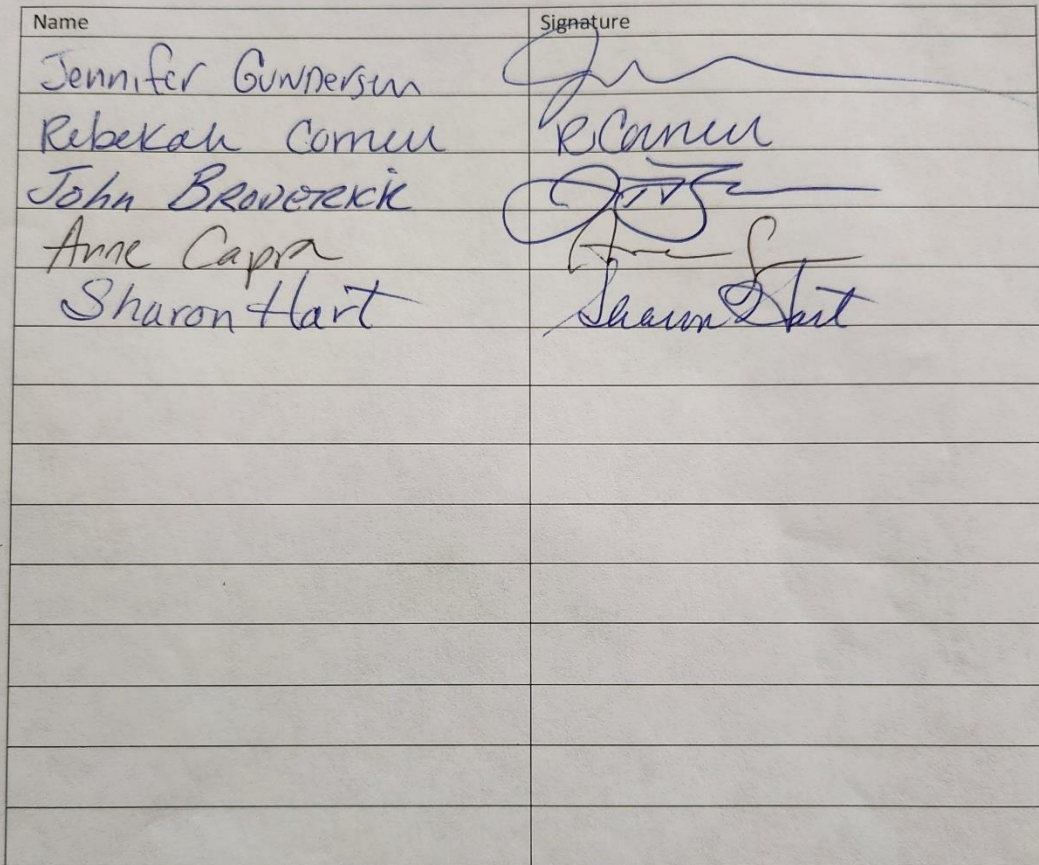 Name Signature
Jennifer Gunderson
Rebekah Cornell RCornell
John Broderick
Anne Capra
Sharon Hart Sharon Hart